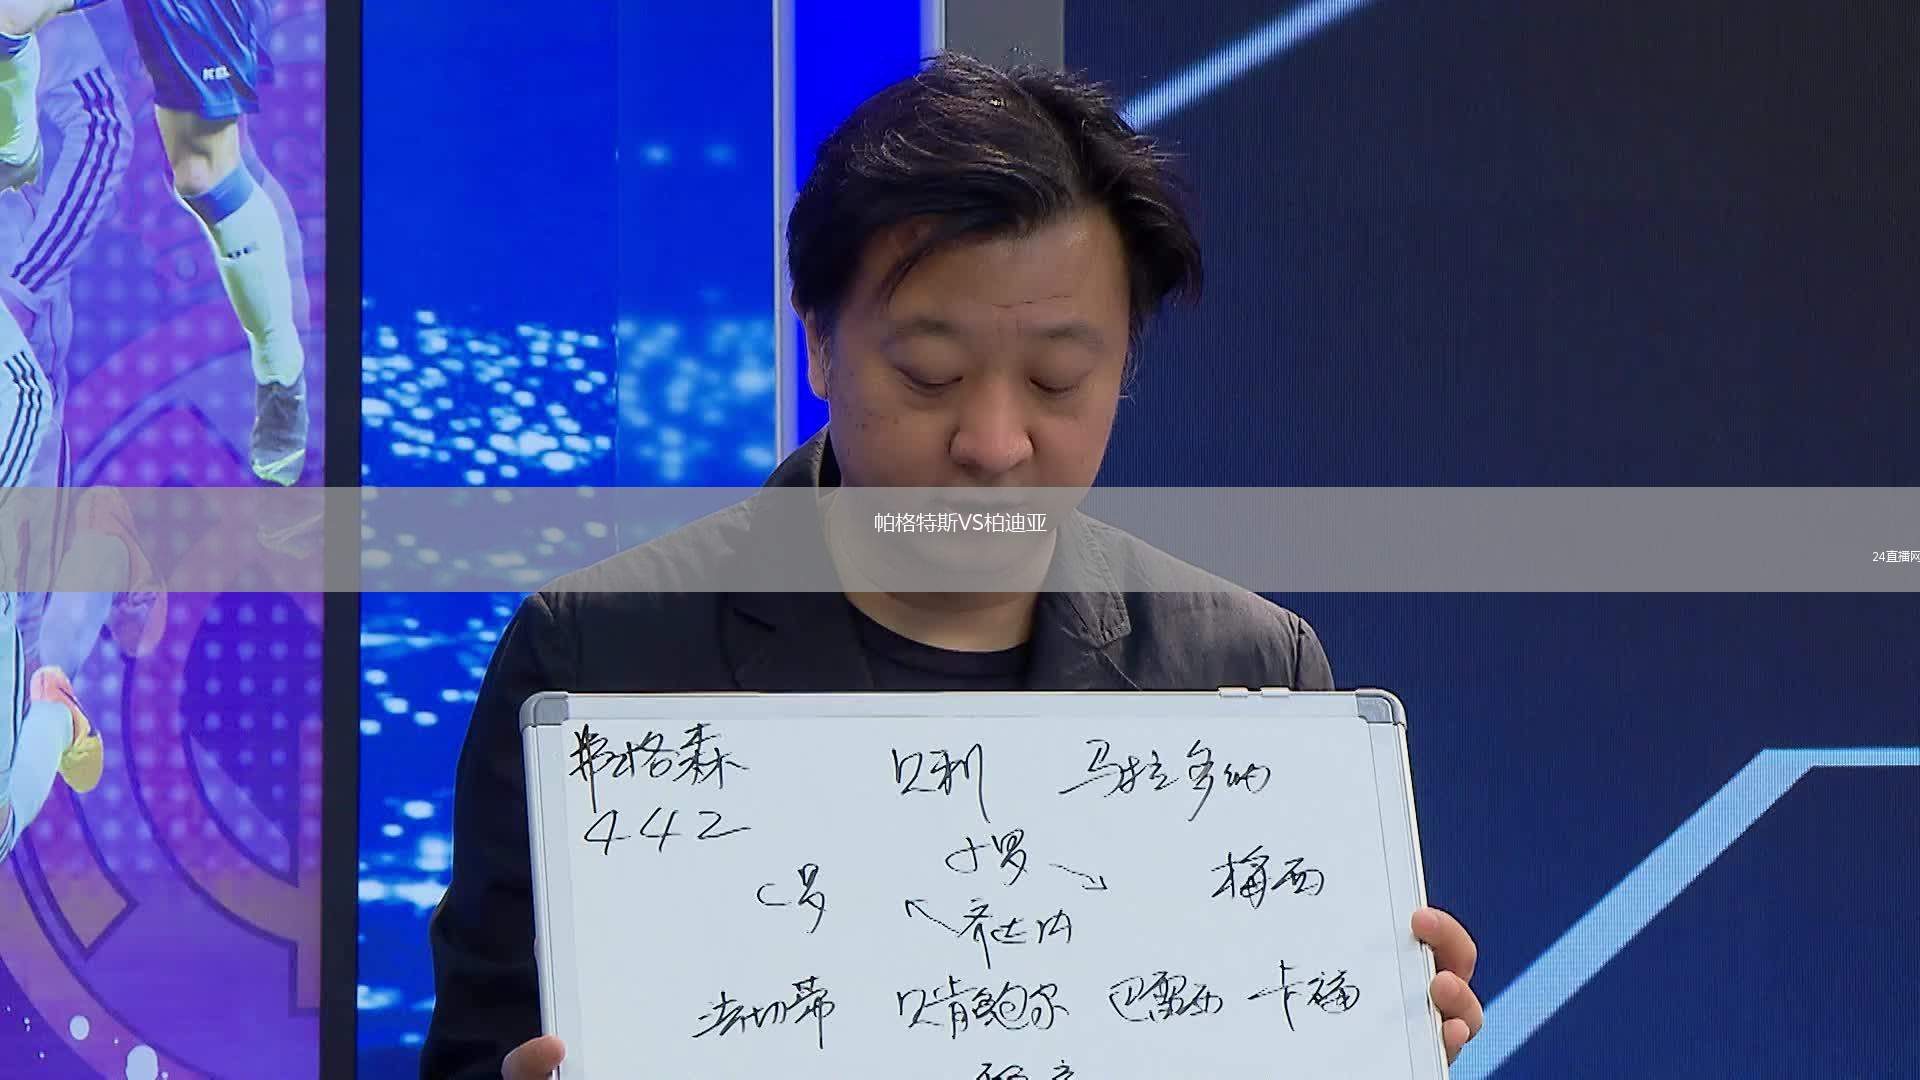 帕格特斯VS柏迪亚
24直播网
弗格森 贝利 马拉多纳
442
小罗
C罗 梅西
齐达内
法切蒂 贝肯鲍尔 巴雷西 卡福